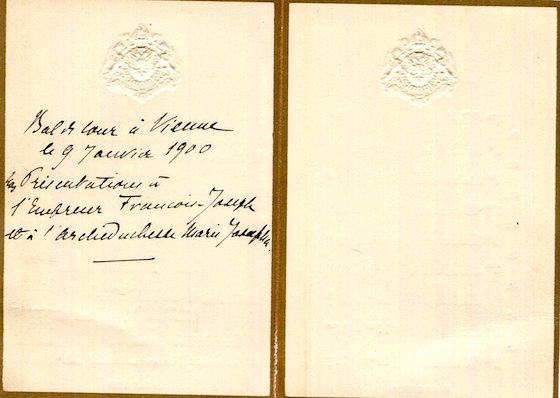 Bal de cour à Vienne
le 9 Janvier 1900
Présentations à
l'Empereur François-Joseph
et à l'Archiduchesse Marie Josepha.